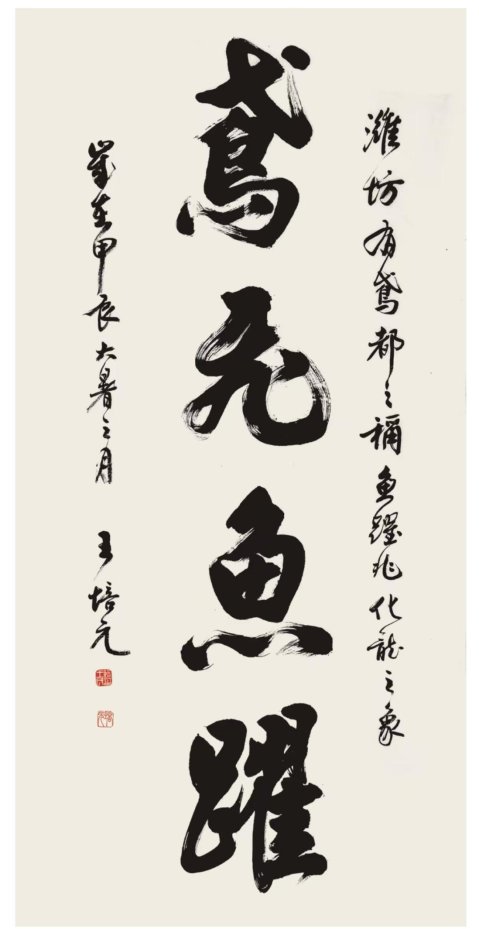 潍坊有鸢都之称鱼躍兆化龍之象
鸢飞魚躍
岁在甲辰大暑之月 王培元